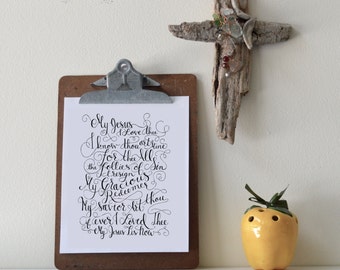 My Jesus
I Love thee
I know thou art mine
For thee All
the follies of Sin
I resign
My Gracious
Redeemer
My Savior Art thou
If ever I Loved Thee
My Jesus tis Now